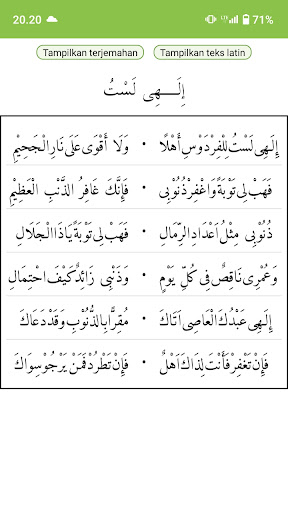 20.20 LTE 71%
Tampilkan terjemahan Tampilkan teks latin
إِلَـــهِى لَسْتُ
إِلَهِى لَسْتُ لِلْفِرْدَوْسِ أَهْلًا • وَلَا أَقْوَى عَلَى نَارِ الْجَحِيْمِ
فَهَبْ لِى تَوْبَةً وَاغْفِرْ ذُنُوْبِى • فَإِنَّكَ غَافِرُ الذَّنْبِ الْعَظِيْمِ
ذُنُوْبِى مِثْلُ اَعْدَادِ الرِّمَالِ • فَهَبْ لِى تَوْبَةً يَاذَا الْجَلَالِ
وَعُمْرِى نَاقِصٌ فِى كُلِّ يَوْمٍ • وَذَنْبِى زَائِدٌ كَيْفَ احْتِمَالِ
إِلَهِى عَبْدُكَ الْعَاصِى اَتَاكَ • مُقِرًّا بِالذُّنُوْبِ وَقَدْ دَعَاكَ
فَإِنْ تَغْفِرْ فَأَنْتَ لِذَاكَ اَهْلٌ • فَإِنْ تَطْرُدْ فَمَنْ يَرْجُوْ سِوَاكَ